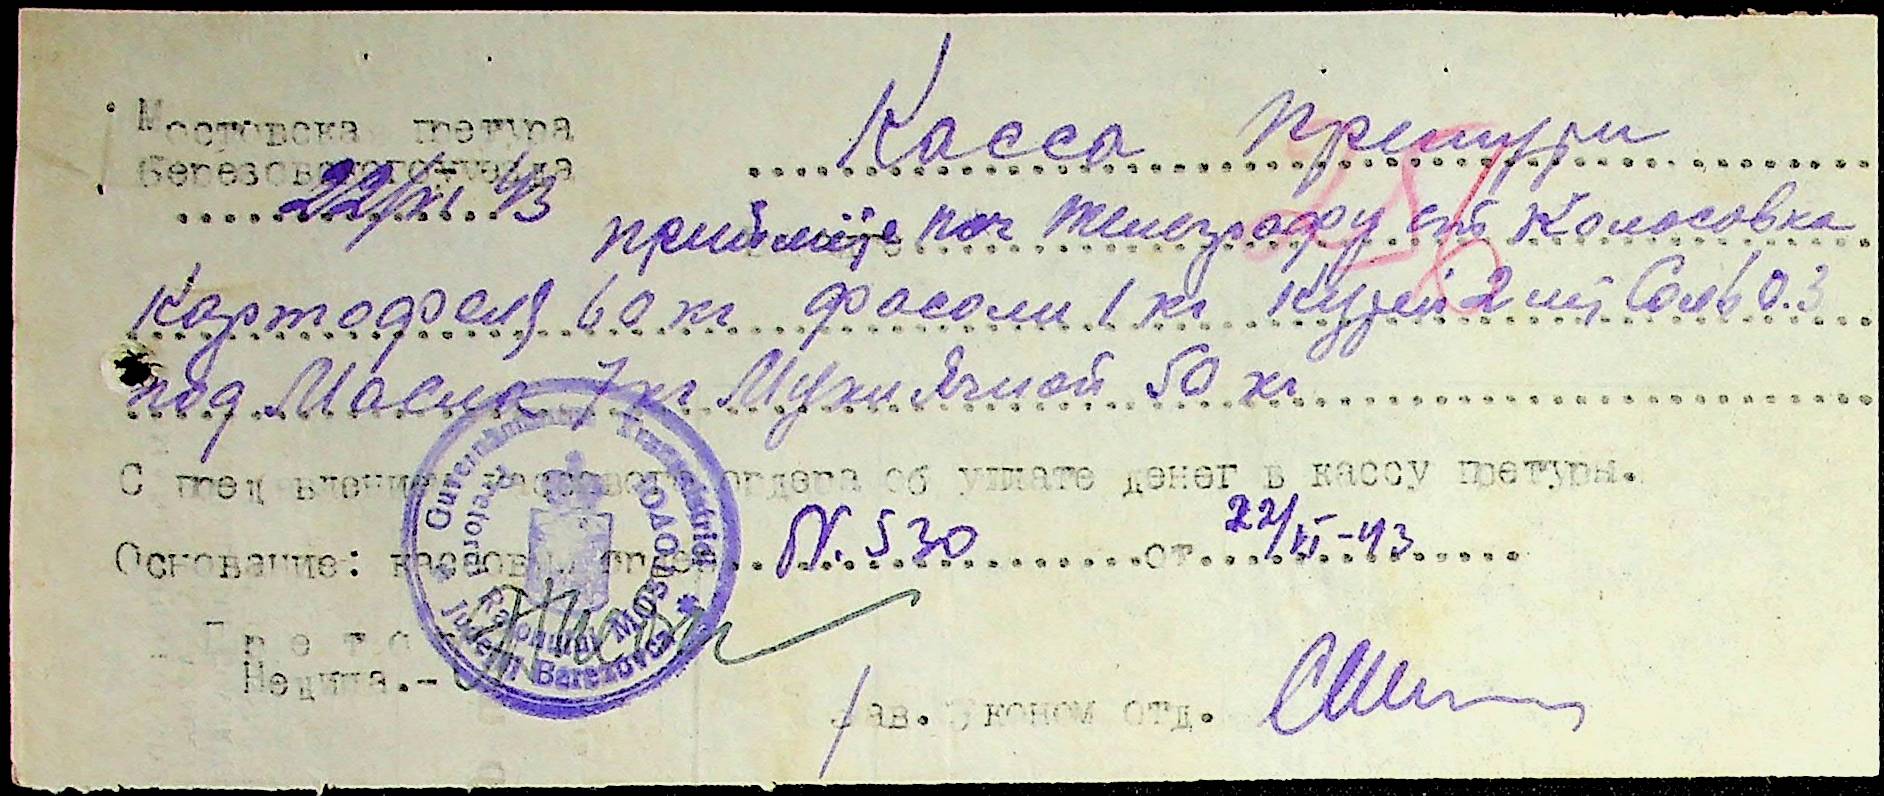 Мостовска претура
березовского уезда
22/XI 43
Касса претури
приймите поч телеграфу ст Колосовка
Картофеля 60 кг фасоли 1 кг курей 2 шт Соль 0.3
под Масла 1 кг Муки Ячной 50 кг
С пред влением кассового ордера об уплате денег в кассу претуры.
Основание: кассовый ордер N. 530 от 22/XI-43
Претор
Недина.-
ав. эконом отд.
Guvernământul Transnistriei
Pretora Raionului Mostovoi
Județul Berezovca